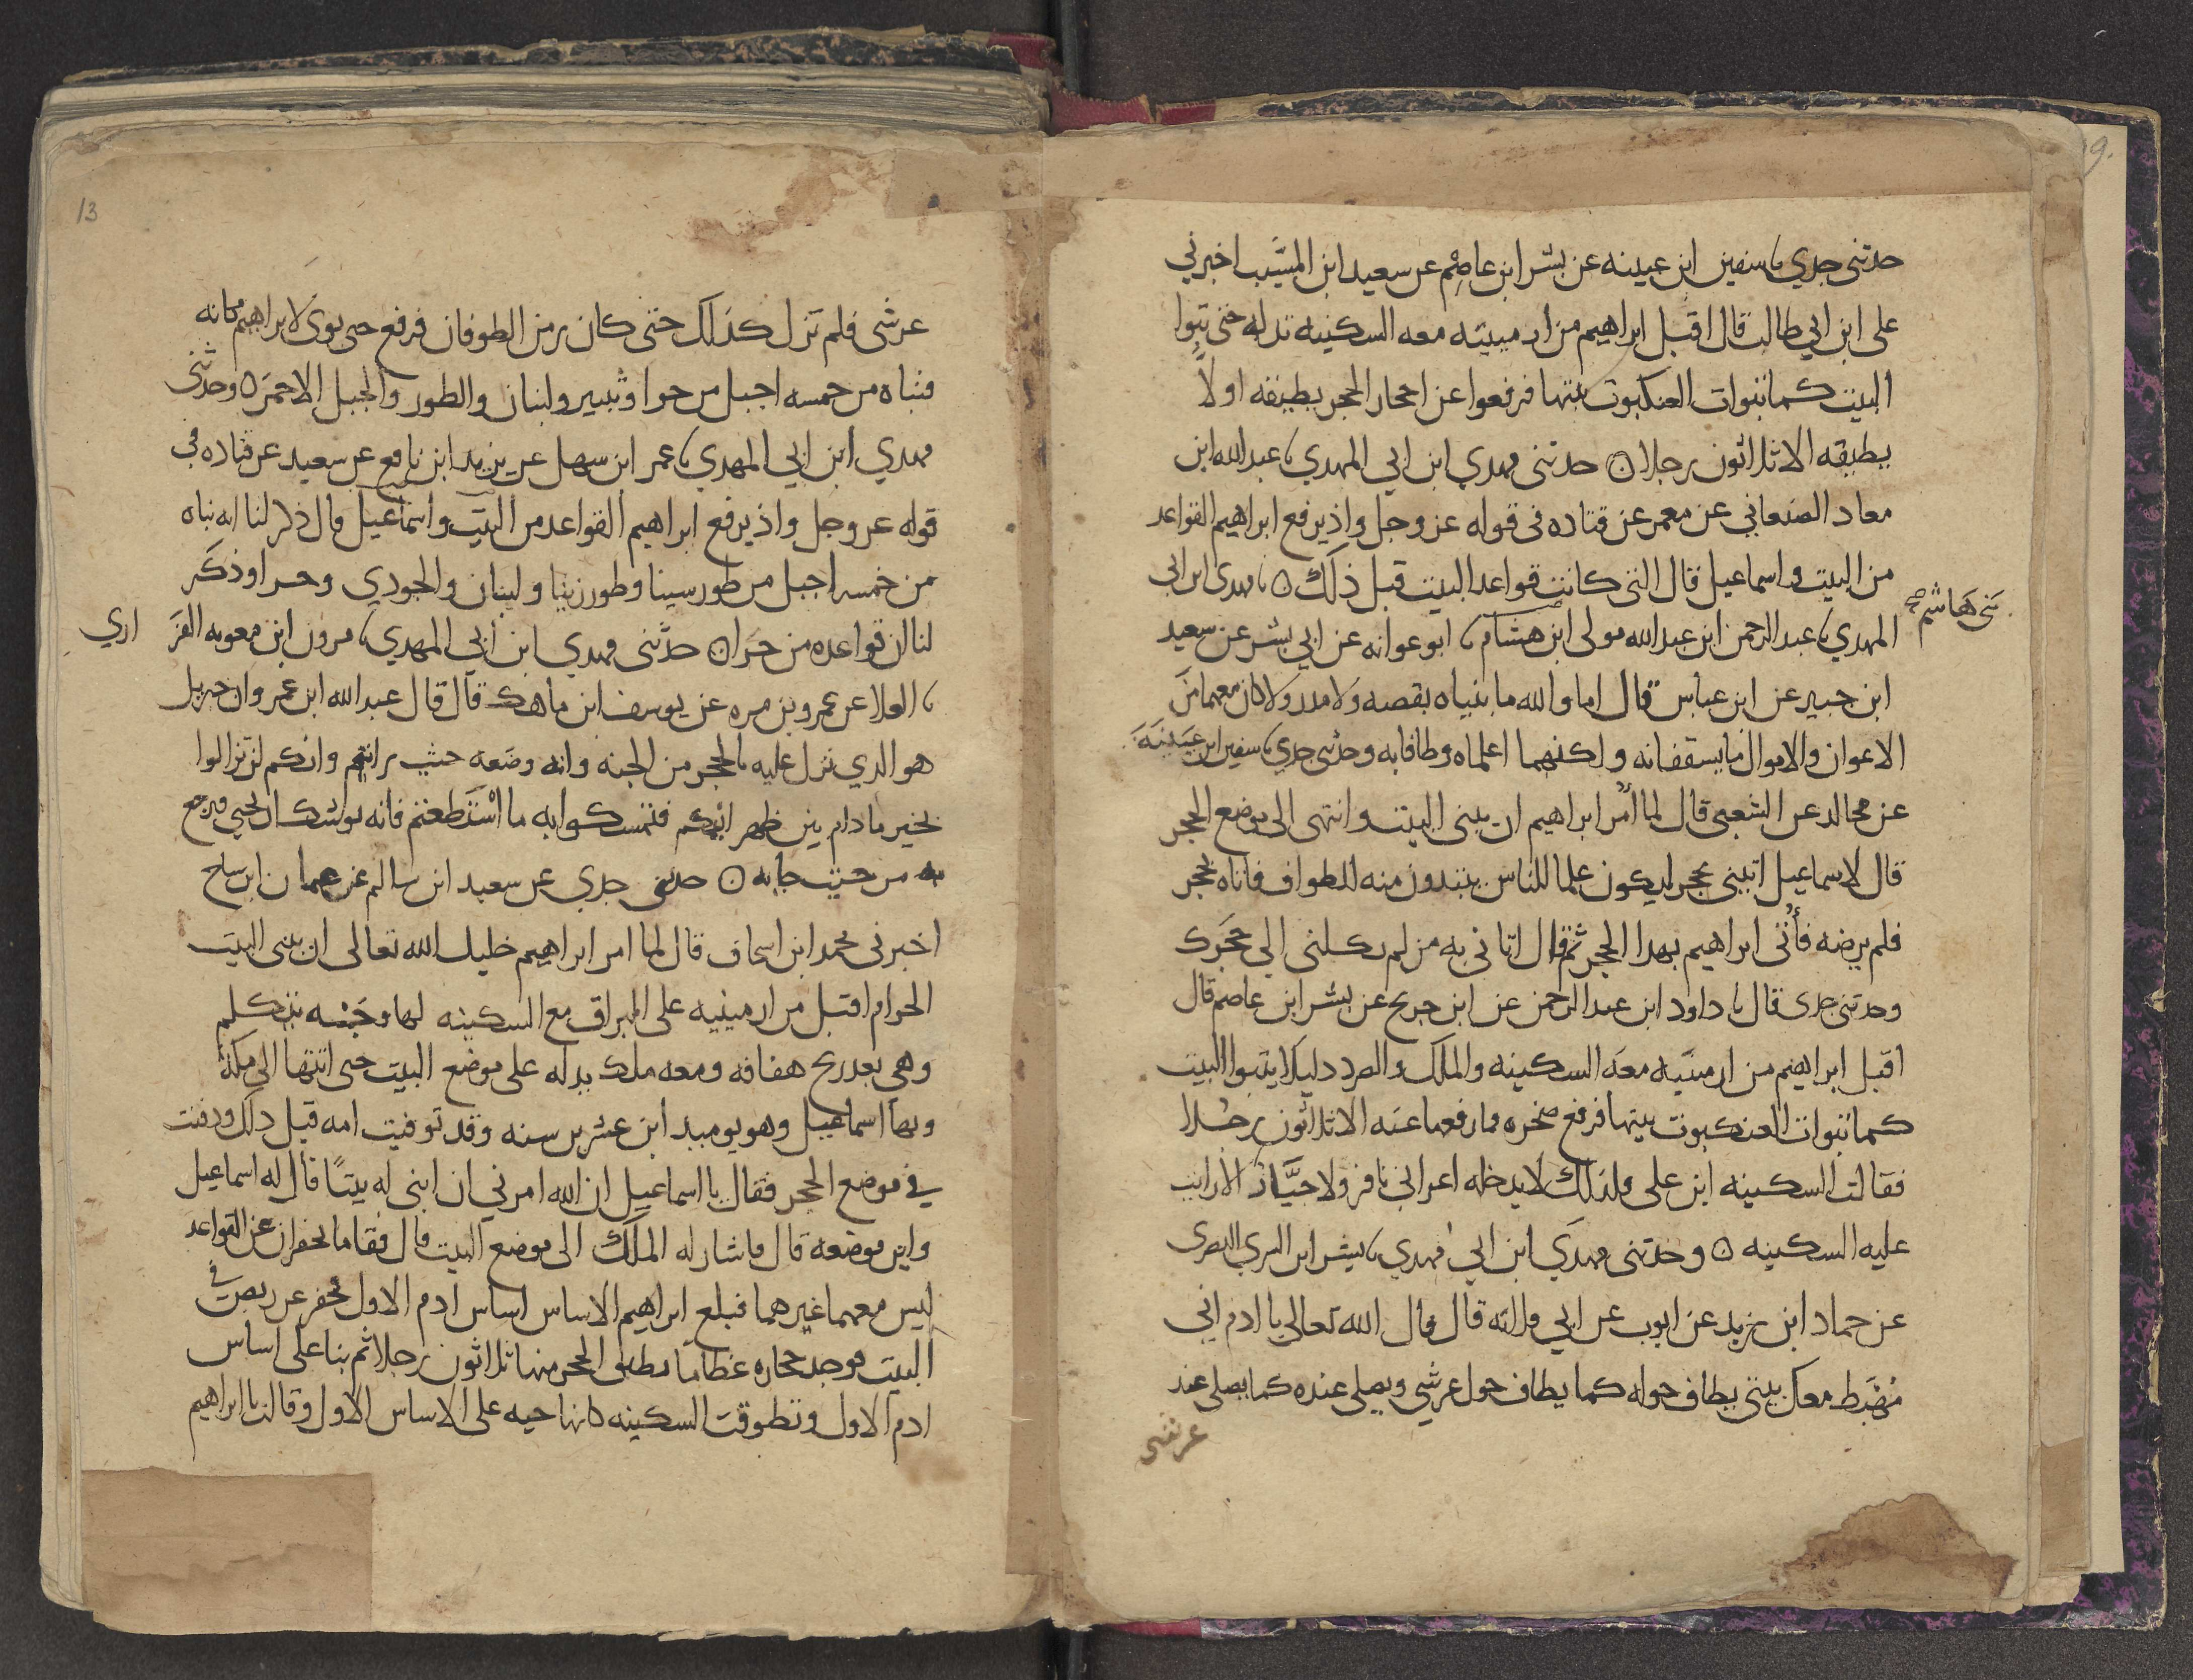 حدثنى جدي ٮا سفين ابن عيينه عن بشر ابن عاصِم عن سعيد ابن المسَيب اخبرني
على ابن ابي طالب قال اقبل ابراهيم من ارمينيه معه السكينه تدله حتى تبوا
البيت كما تبوات العنكبوت بيتها فرفعوا عن احجار الحجر يطيقه اولا
يطيقه الا ثلاثون رجلا ۝ حدثنى مهدي ابن ابي المهدي ٮا عبد الله ابن
معاد الصنعاني عن معمر عن قتاده فى قوله عز وجل واذ يرفع ابراهيم القواعد
من البيت واسماعيل قال التى كانت قواعد البيت قبل ذلك ۝ ٮا مهدى ابن ابى
بَنى هَاشم صح
المهدي ٮا عبد الرحمن ابن عبد الله مولى ابن هشام ٮا ابو عوانه عن ابي بشر عن سعيد
ابن جبير عن ابن عباس قال اما والله ما بنياه بقصه ولا مدر ولا كان معهما من
الاعوان والاموال ما يسقفانه ولكنهما اعلماه وطافا به وحدثنى جدي ٮا سفين ابن عيَينَه
عن مجالد عن الشعبى قال لما اُمر ابراهيم ان يبنى البيت وانتهى الى موضع الحجر
قال لاسماعيل ايتنى بحجر ليكون علما للناس يبتدون منه الطواف فاتاه بحجر
فلم يرضه فأُتى ابراهيم بهدا الحجر ثم قال اتانى به من لم يكلنى الي حجَرك
وحدثنى جدى قال ٮا داود ابن عبد الرحمن عن ابن جريج عن بشر ابن عاصم قال
اقبل ابراهيم من ارمنيه معَه السكينه والملك والصرد دليلا يتبوا البيت
كما تبوات العنكبوت بيتها فرفع صخره فما رفعها عنه الا ثلاثون رجلا
فقالت السكينه ابن على فلذلك لا يدخله اعرابي نافر ولا جبَّار الا رايت
عليه السكينه ۝ وحدثنى مهدي ابن ابي مهدي ٮا بشر ابن السري البصرى
عن حماد ابن زيد عن ايوب عن ابي قلابه قال قال الله تعالى يا ادم اني
مُهْبَط معك بيتى يطاف حوله كما يطاف حول عرشي ويصلى عنده كما يصلى عند
عرشى
13
عرشى فلم تزل كذلك حتى كان زمن الطوفان فرفع حتى بوى لابراهيم مكانه
فبناه من خمسه اجبل من حرا وثبير ولبنان والطور والجبل الاحمَر ۝ وحدثنى
مهدي ابن ابي المهدي ٮا عمر ابن سهل عن يزيد ابن نافع عن سعيد عن قتاده فى
قوله عز وجل واذ يرفع ابراهيم القواعد من البيت واسماعيل قال ذكر لنا انه بناه
من خمسه اجبل من طور سينا وطور زيتا ولبنان والجودي وحرا وذكر
لنا ان قواعده من حرا ۝ حدثنى مهدي ابن ابي المهدي ٮا مرون ابن معويه الفز اري
ٮا العلا عن عمرو بن مره عن يوسف ابن ماهك قال قال عبد الله ابن عمرو ان جبريل
هو الدي نزل عليه بالحجر من الجنه وانه وضعه حيث رايتم وانكم لن تزالوا
بخير ما دام بين ظهرانيكم فتمسكوا به ما استطعتم فانه يوشك ان يجي فيرجع
به من حيث جا به ۝ حدثنى جدي عن سعيد ابن سالم عن عثمان ابن ساج
اخبرنى محمد ابن اسحاق قال لما امر ابراهيم خليل الله تعالى ان يبنى البيت
الحرام اقبل من ارمينيه على البراق مع السكينه لها وجه يتكلم
وهي بعد ريح هفافه ومعه ملك يدله على موضع البيت حتى انتها الى مكة
وبها اسماعيل وهو يوميد ابن عشرين سنه وقد توفيت امه قبل دلك ودفنت
في موضع الحجر فقال يا اسماعيل ان الله امرني ان ابنى له بيتًا قال له اسماعيل
واين موضعه قال فاشار له الملك الى موضع البيت قال فقاما يحفران عن القواعد
ليس معهما غيرهما فبلع ابراهيم الاساس اساس ادم الاول فحفر عن ربض في
البيت فوجد حجاره عظاما يطيق الحجر منها ثلاثون رجلا ثم بنا على اساس
ادم الاول وتطوقت السكينه كانها حيه على الاساس الاول وقالت يا ابراهيم